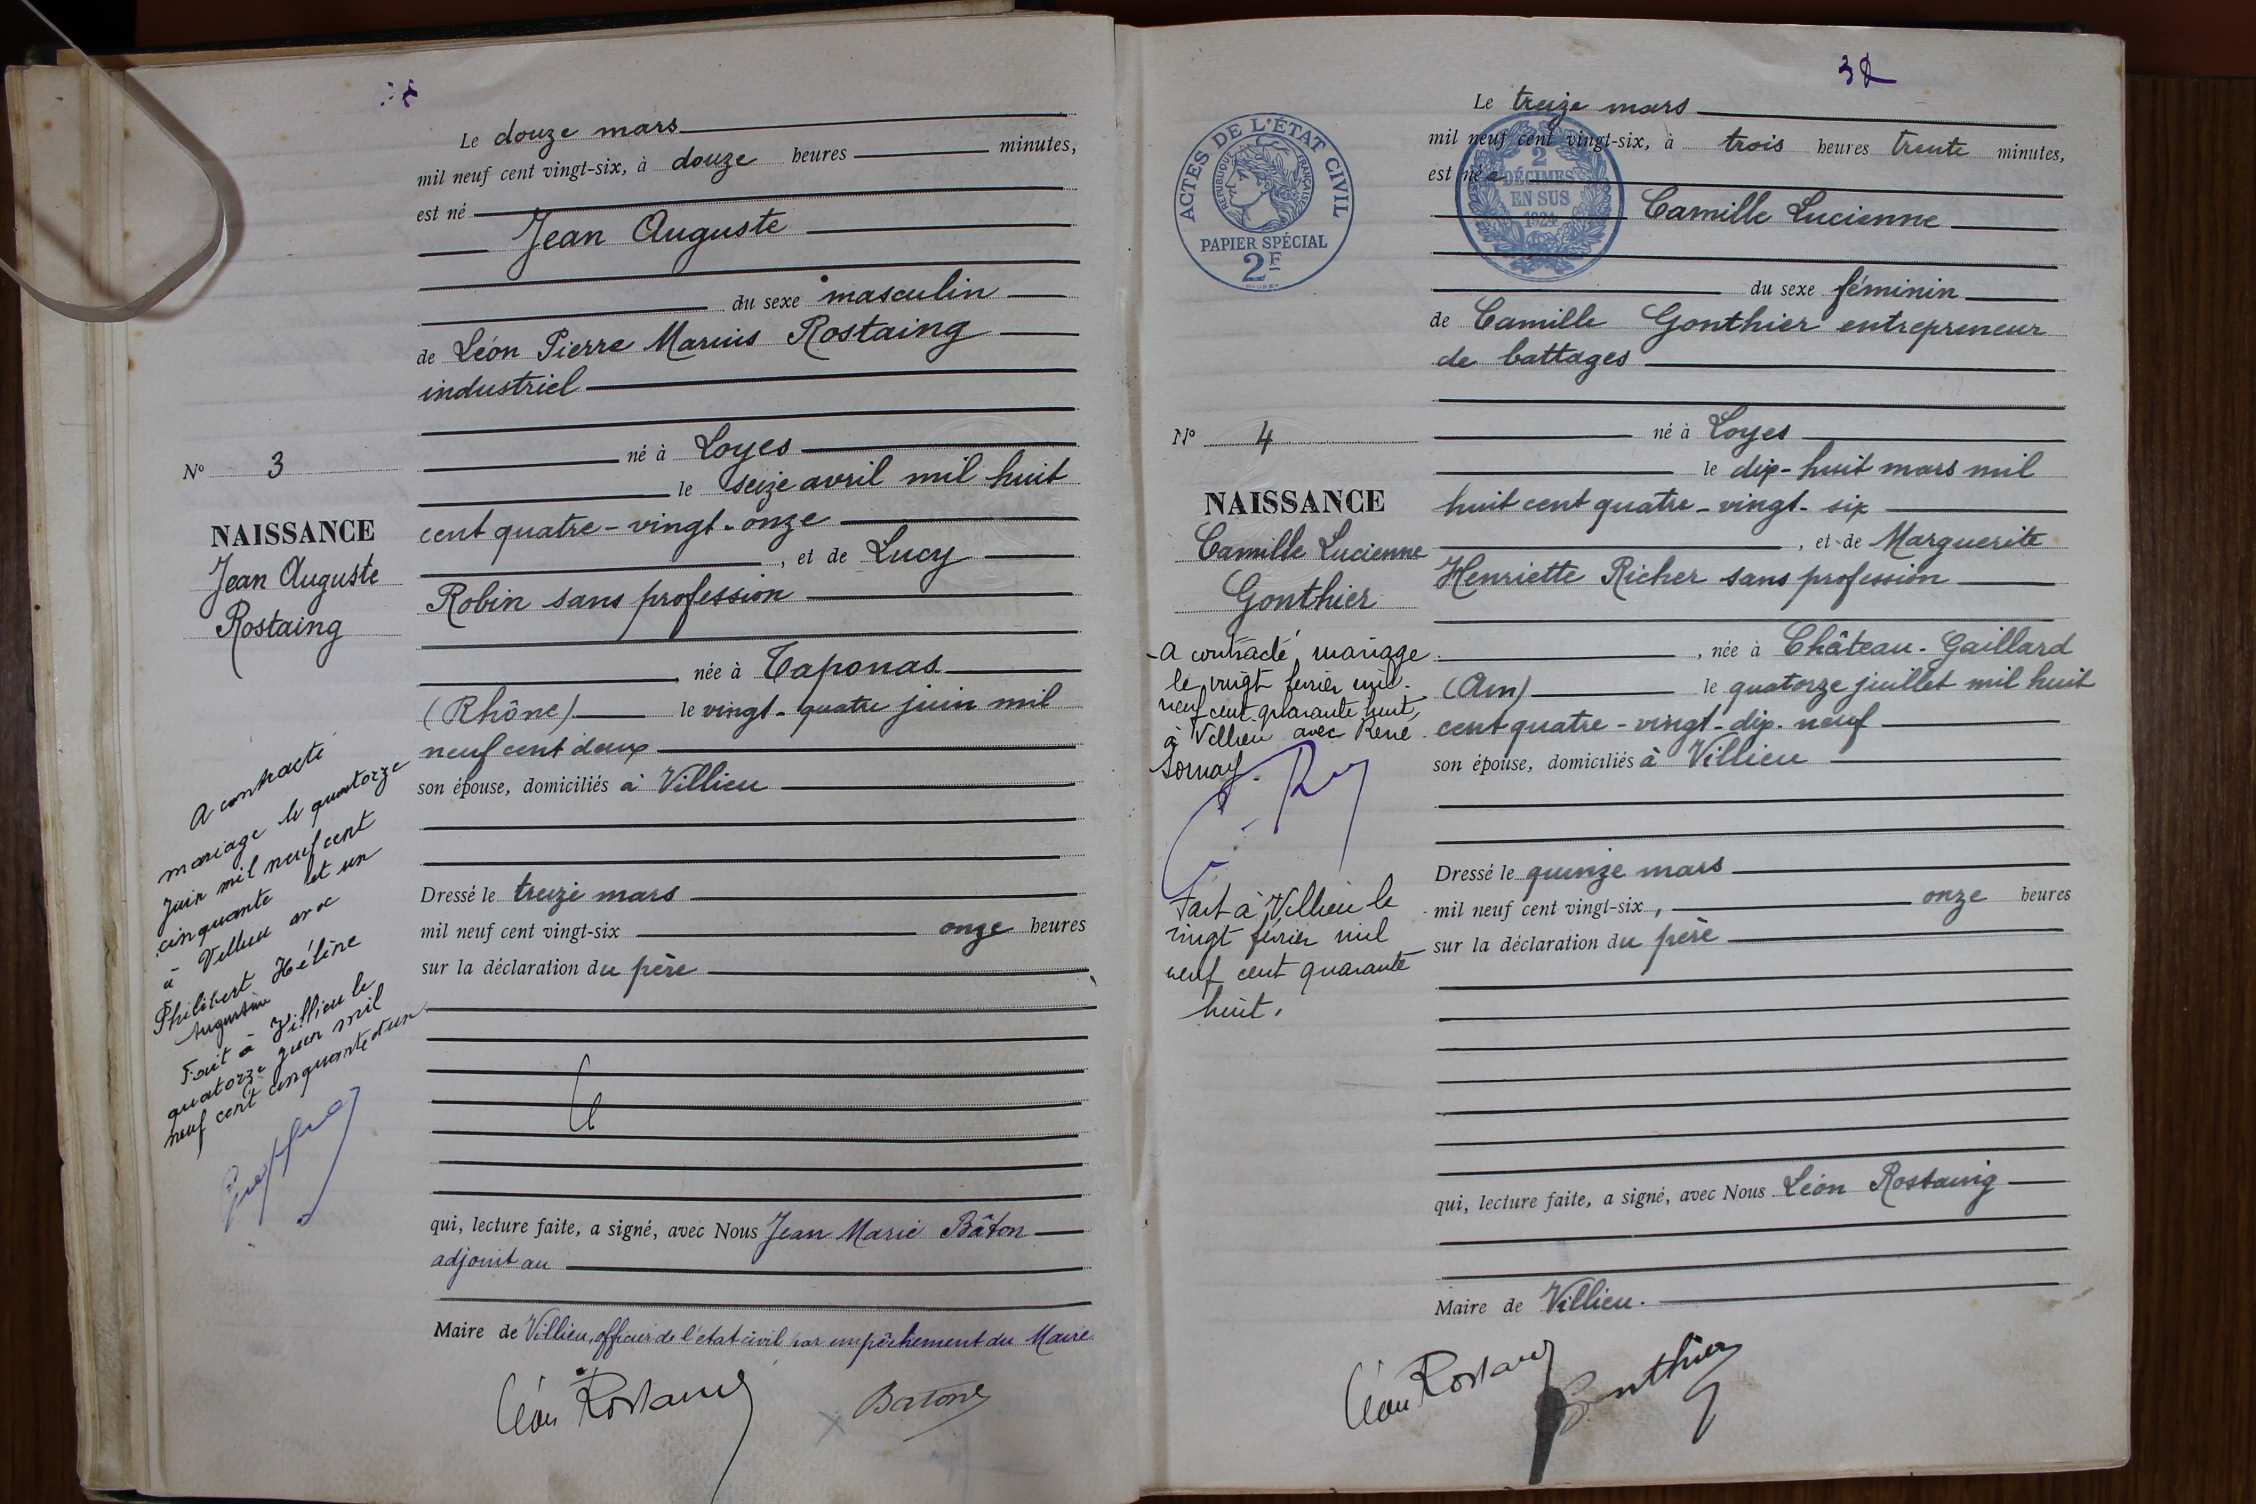 Le douze mars
mil neuf cent vingt-six, à douze heures minutes,
est né
Jean Auguste
du sexe masculin
de Léon Pierre Marius Rostaing
industriel
né à Loyes
le seize avril mil huit
cent quatre-vingt-onze
, et de Lucy
Robin sans profession
, née à Taponas
(Rhône) le vingt-quatre juin mil
neuf cent deux
son épouse, domiciliés à Villieu
Dressé le treize mars
mil neuf cent vingt-six onze heures
sur la déclaration du père
qui, lecture faite, a signé, avec Nous Jean Marie Bâton
adjoint au
Maire de Villieu, officier de l'état civil par empêchement du Maire
Léon Rostaing
Baton
N° 3
NAISSANCE
Jean Auguste
Rostaing
A contracté
mariage le quatorze
juin mil neuf cent
cinquante et un
à Villieu avec
Philibert Hélène
Augustine
Fait à Villieu le
quatorze juin mil
neuf cent cinquante et un
32
ACTES DE L'ÉTAT CIVIL
RÉPUBLIQUE FRANÇAISE
PAPIER SPÉCIAL
2F
2
DÉCIMES
EN SUS
1924
Le treize mars
mil neuf cent vingt-six, à trois heures trente minutes,
est née
Camille Lucienne
du sexe féminin
de Camille Gonthier entrepreneur
de battages
né à Loyes
le dix-huit mars mil
huit cent quatre-vingt-six
, et de Marguerite
Henriette Richer sans profession
, née à Château-Gaillard
(Ain) le quatorze juillet mil huit
cent quatre-vingt-dix-neuf
son épouse, domiciliés à Villieu
Dressé le quinze mars
mil neuf cent vingt-six, onze heures
sur la déclaration du père
qui, lecture faite, a signé, avec Nous Léon Rostaing
Maire de Villieu.
Léon Rostaing
Gonthier
N° 4
NAISSANCE
Camille Lucienne
Gonthier
A contracté mariage
le vingt février mil
neuf cent quarante huit,
à Villieu avec René
Sornay.
Fait à Villieu le
vingt février mil
neuf cent quarante
huit.